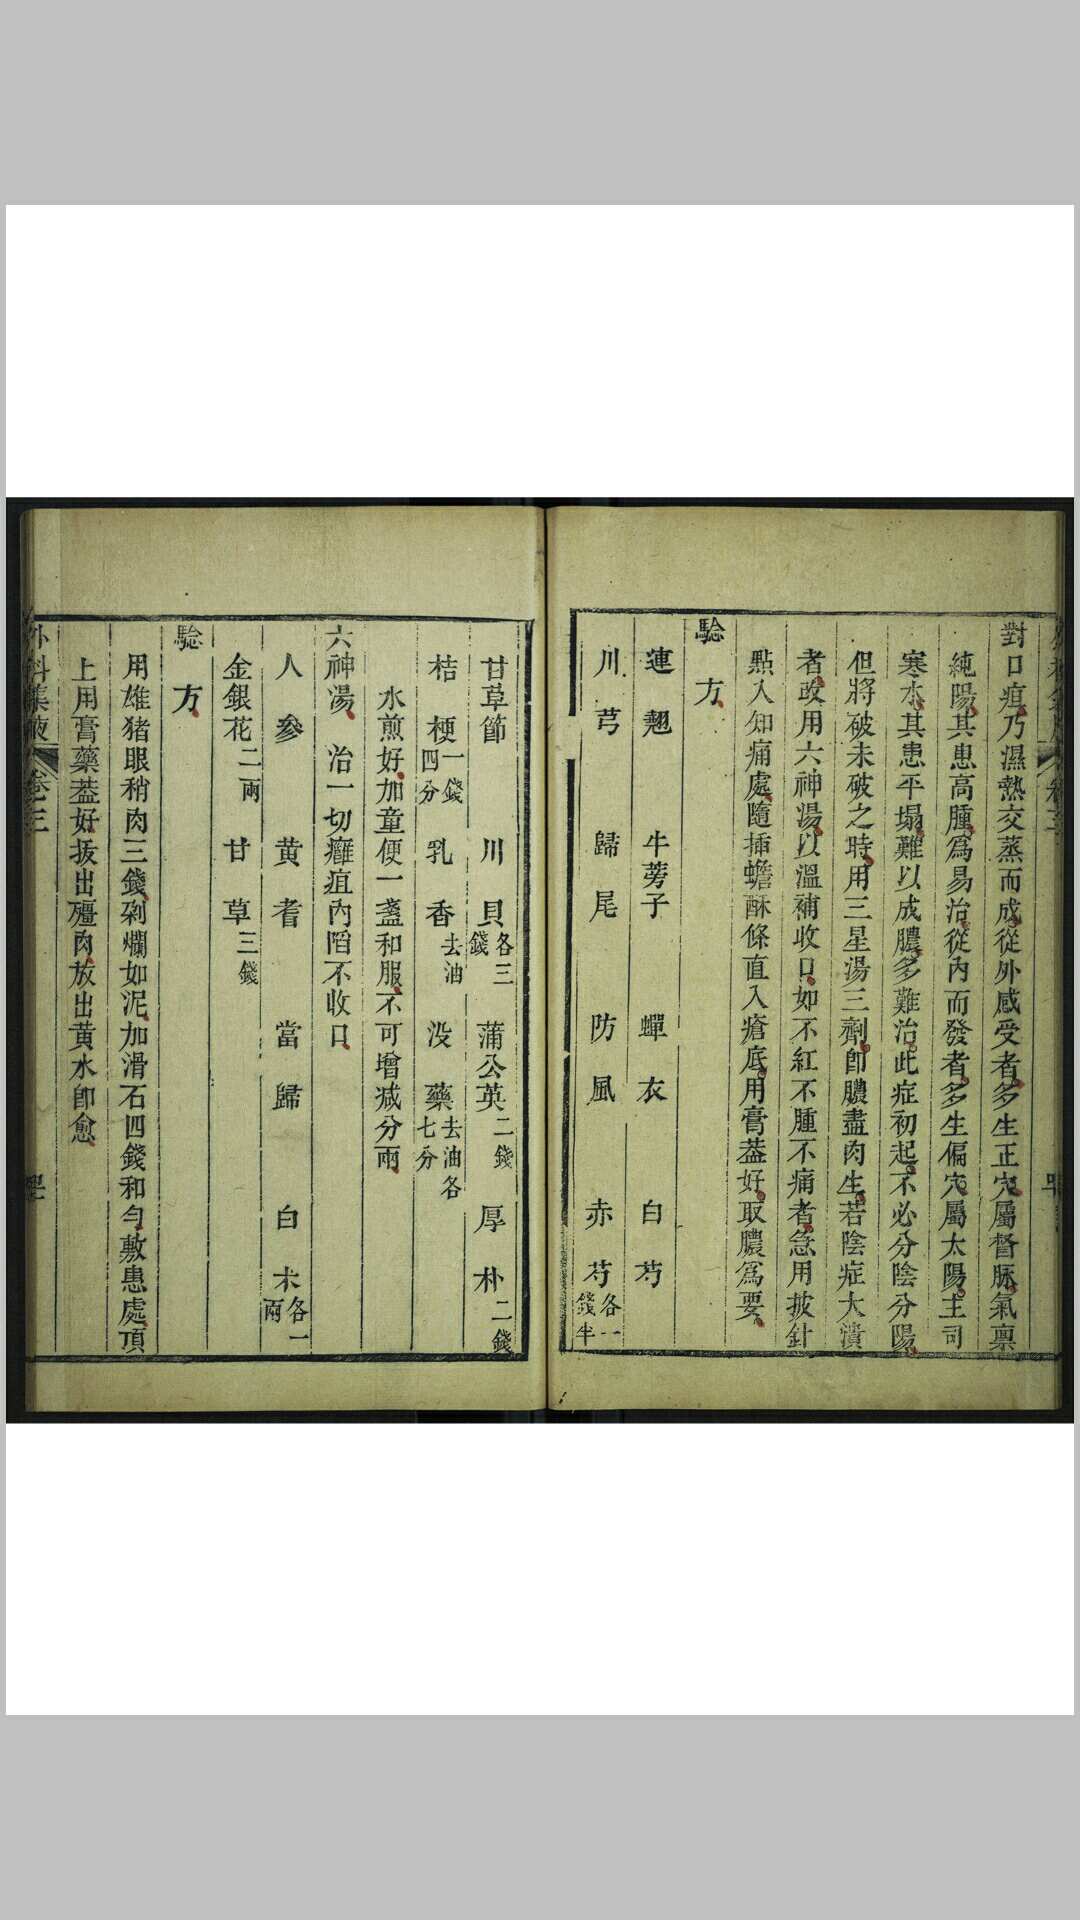 對口疽乃濕熱交蒸而成從外感受者多生正穴屬督脉氣禀
純陽其患高腫爲易治從內而發者多生偏穴屬太陽主司
寒水其患平塌難以成膿多難治此症初起不必分陰分陽
但將破未破之時用三星湯三劑卽膿盡肉生若陰症大潰
者政用六神湯以溫補收口如不紅不腫不痛者急用披針
點入知痛處隨插蟾酥條直入瘡底用膏葢好取膿爲要
驗方
連翹 牛蒡子 蟬衣 白芍
川芎 歸尾 防風 赤芍各一錢半
甘草節 川貝各三錢 蒲公英二錢 厚朴二錢
桔梗一錢四分 乳香去油 没藥去油各七分
水煎好加童便一盞和服不可增减分兩
六神湯 治一切癰疽內陷不收口
人參 黄耆 當歸 白朮各一兩
金銀花二兩 甘草三錢
驗方
用雄猪眼稍肉三錢剁爛如泥加滑石四錢和勻敷患處頂
上用膏藥葢好拔出殭肉放出黄水卽愈
外科集腋 卷三